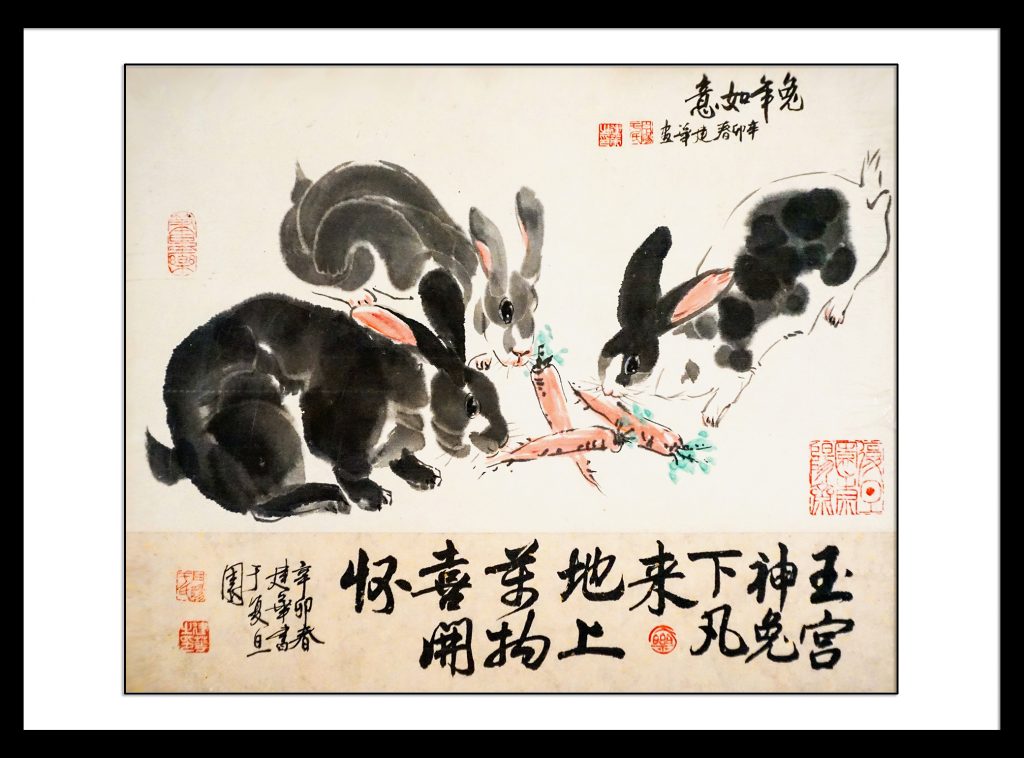 兔年如意
辛卯春建華畫
玉宫
神兔
下凡
来
地上
萬物
喜開
怀
辛卯春
建華書
于复旦
園